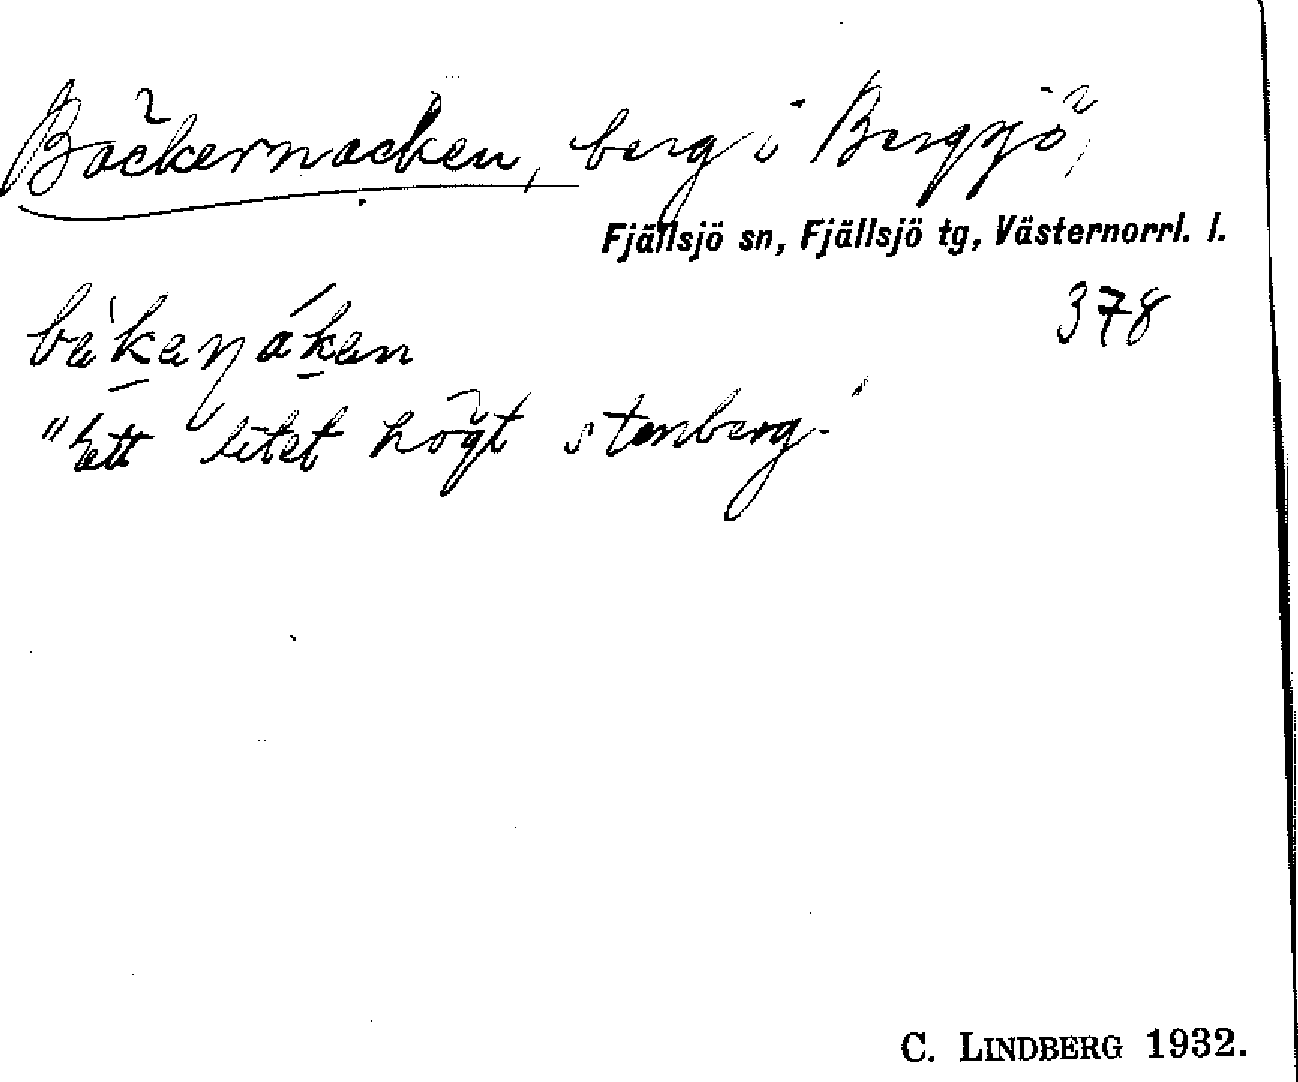 Bäckernacken, berg i Bergsjö,
Fjällsjö sn, Fjällsjö tg, Västernorrl. l.
378
"Ett litet högt stenberg."
C. LINDBERG 1932.